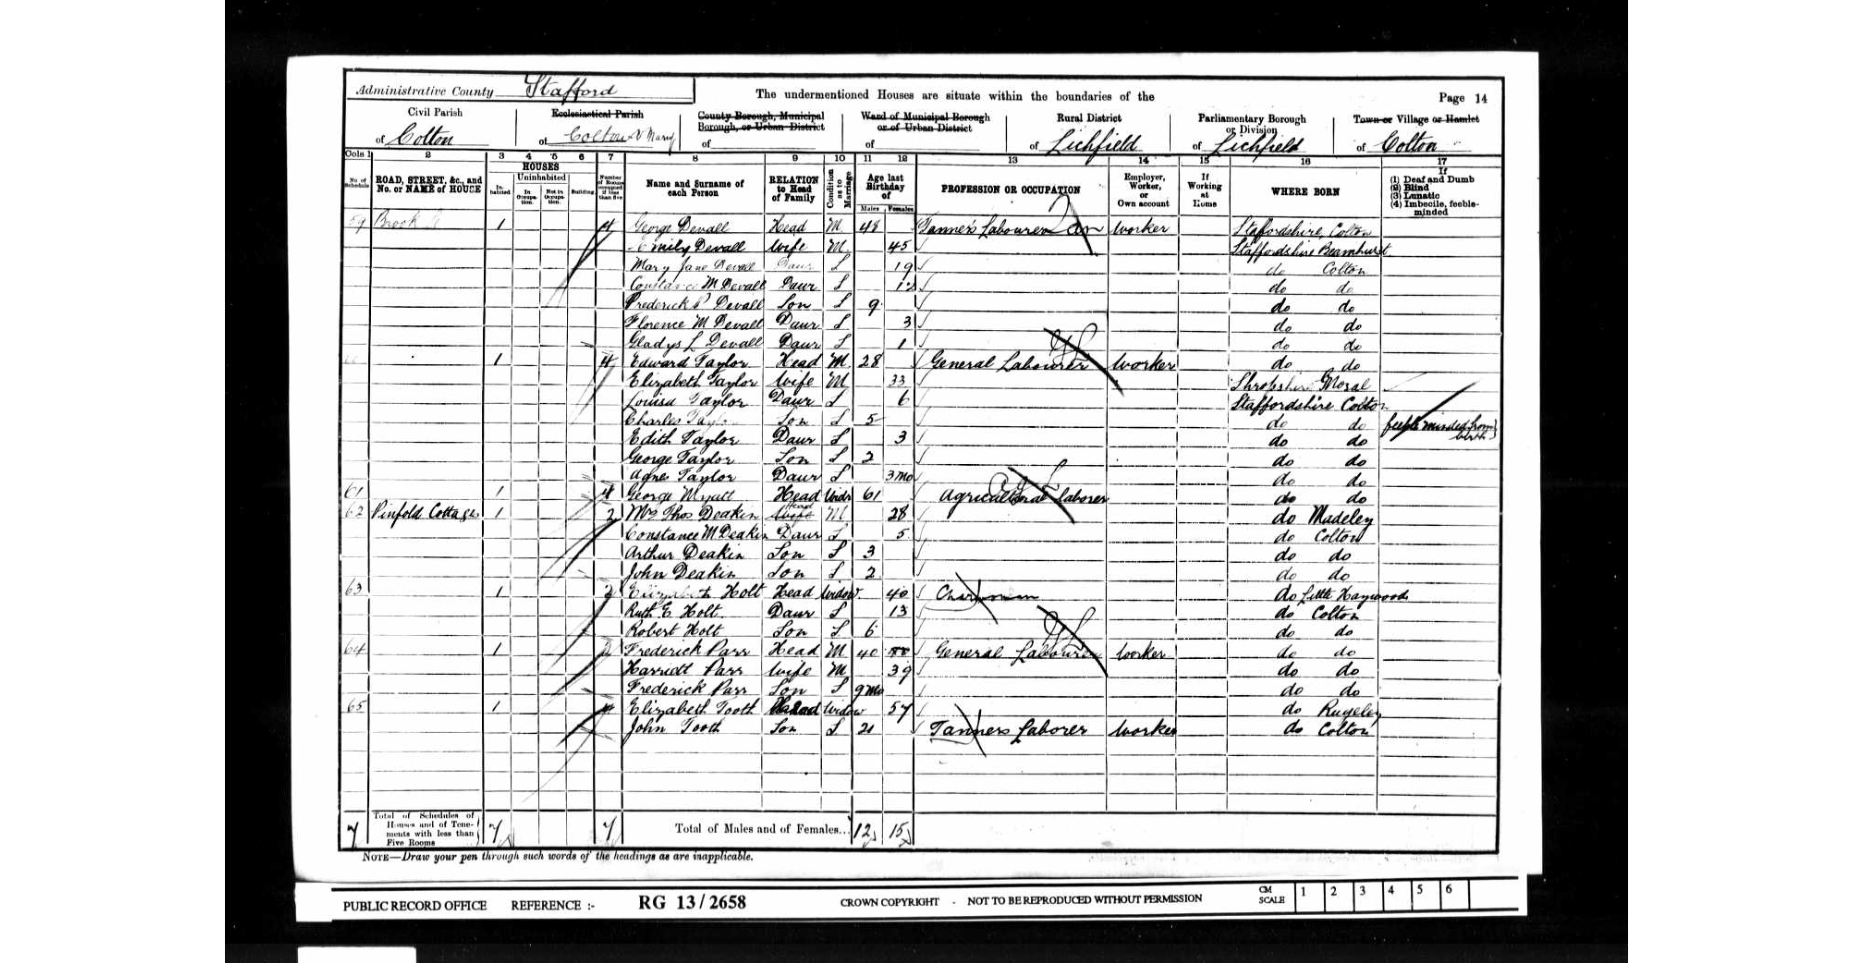 Administrative County Stafford
The undermentioned Houses are situate within the boundaries of the
Page 14
Civil Parish of Colton
Ecclesiastical Parish of Colton St Mary
County Borough, Municipal Borough, or Urban District of
Ward of Municipal Borough or of Urban District of
Rural District of Lichfield
Parliamentary Borough or Division of Lichfield
Town or Village or Hamlet of Colton
Cols 1 2 3 4 5 6 7 8 9 10 11 12 13 14 15 16 17
No. of Schedule
ROAD, STREET, &c., and No. or NAME of HOUSE
HOUSES
Inhabited
Uninhabited
In Occupation.
Not in Occupation.
Building
Number of Rooms occupied if less than five
Name and Surname of each Person
RELATION to Head of Family
Condition as to Marriage
Age last Birthday of
Males Females
PROFESSION OR OCCUPATION
Employer, Worker, or Own account
If Working at Home
WHERE BORN
If (1) Deaf and Dumb (2) Blind (3) Lunatic (4) Imbecile, feeble-minded
59 Brook 1 4 George Devall Head M 48 Tanner's Labourer Worker Staffordshire Colton
Emily Devall Wife M 45 Staffordshire Bramhurst
Mary Jane Devall Daur S 19 do Colton
Constance M Devall Daur S do do
Frederick P Devall Son S 9 do do
Florence M Devall Daur S 3 do do
Gladys L Devall Daur S 1 do do
1 4 Edward Taylor Head M 28 General Labourer Worker do do
Elizabeth Taylor Wife M 33 Shropshire
Louisa Taylor Daur S 6 Staffordshire Colton
Charles Taylor Son S 5 do do feeble minded from birth
Edith Taylor Daur S 3 do do
George Taylor Son S 2 do do
Agnes Taylor Daur S 3 Mo do do
61 1 4 George Wyatt Head Widr 61 Agricultural laborer do do
62 Pinfold Cottages 1 2 Mrs Thos Deakin Wife Head M 28 do Madeley
Constance M Deakin Daur S 5 do Colton
Arthur Deakin Son S 3 do do
John Deakin Son S 2 do do
63 1 2 Elizabeth Holt Head Widow 40 Charwoman do Little Haywood
Ruth E Holt Daur S 13 do Colton
Robert Holt Son S 6 do do
64 1 Frederick Parr Head M 40 General Labourer Worker do do
Harriett Parr Wife M 39 do do
Frederick Parr Son S 9 Mo do do
65 1 4 Elizabeth Tooth Head Widow 57 do Rugeley
John Tooth Son S 21 Tanners Laborer Worker do Colton
7 Total of Schedules of Houses and of Tenements with less than Five Rooms 7 7 Total of Males and of Females... 12 15
NOTE—Draw your pen through such words of the headings as are inapplicable.
PUBLIC RECORD OFFICE REFERENCE :- RG 13/2658 CROWN COPYRIGHT - NOT TO BE REPRODUCED WITHOUT PERMISSION CM SCALE 1 2 3 4 5 6